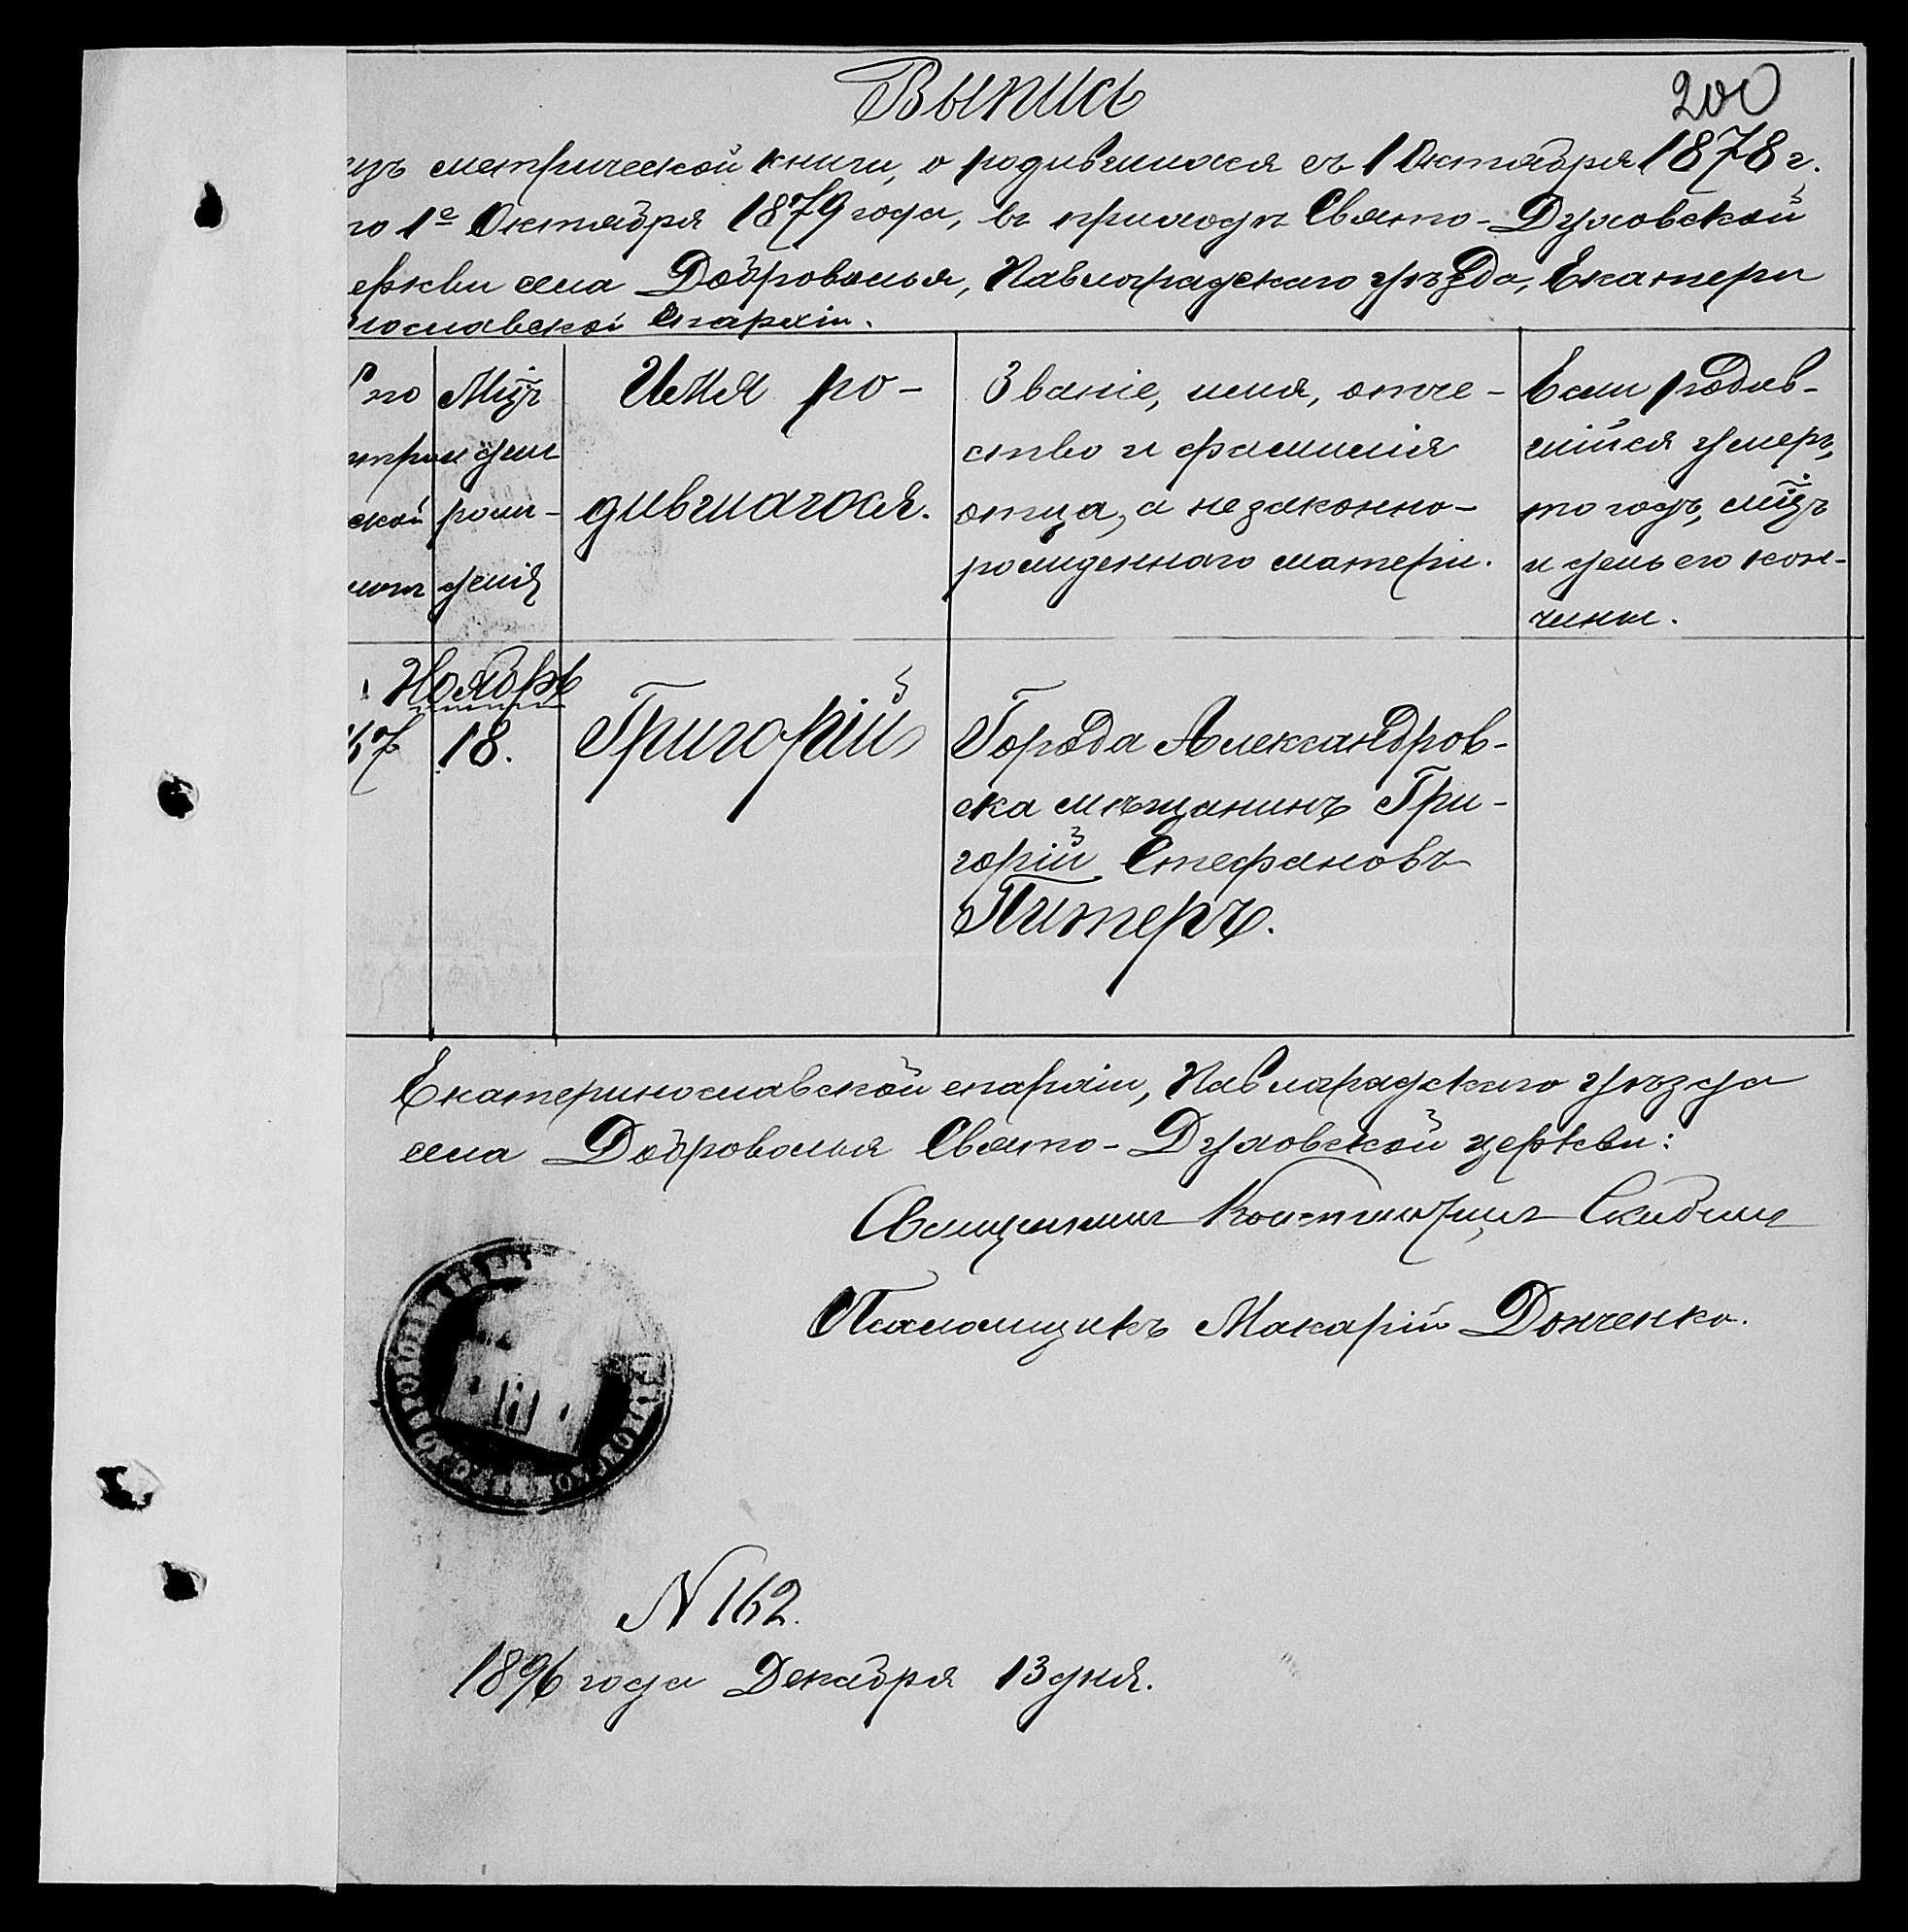 Выпись
200
изъ метрической книги, о родившихся съ 1 Октября 1878 г.
по 1е Октября 1879 года, въ приходѣ Свято-Духовской
еркви села Доброволья, Павлоградскаго уѣзда, Екатери
нославской Епархіи.
№ по
три
ской
Мцъ
и день
рож-
денія
Имя ро-
дившагося.
Званіе, имя, отче-
ство и фамилія
отца, а незаконно-
рожденнаго матери.
Если родив-
шійся умеръ,
то годъ, мцъ
и день его кон-
чины.
Ноябрь
18.
Григорій
Города Александров-
ска мѣщанинъ Гри-
горій Стефановъ
Питеръ.
Екатеринославской епархіи, Павлоградскаго уѣзда
села Доброволья Свято-Духовской церкви:
Священникъ Константинъ
Псаломщикъ Макарій Донченко.
N 162.
1896 года Декабря 13 дня.